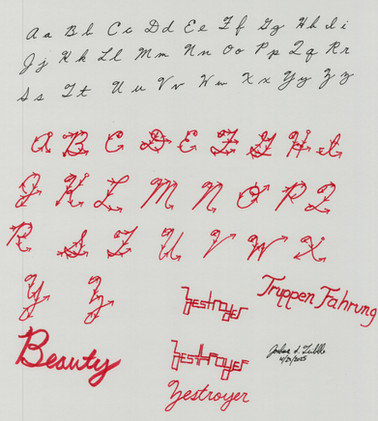 A a B b C c D d E e F f G g H h I i
J j K k L l M m N n O o P p Q q R r
S s T t U u V v W w X x Y y Z z
A B C D E F G H I
J K L M N O P Q
R S T U V W X
Y Z
Zestroyer
Truppen Fahrung
Beauty
Zestroyer
Zestroyer